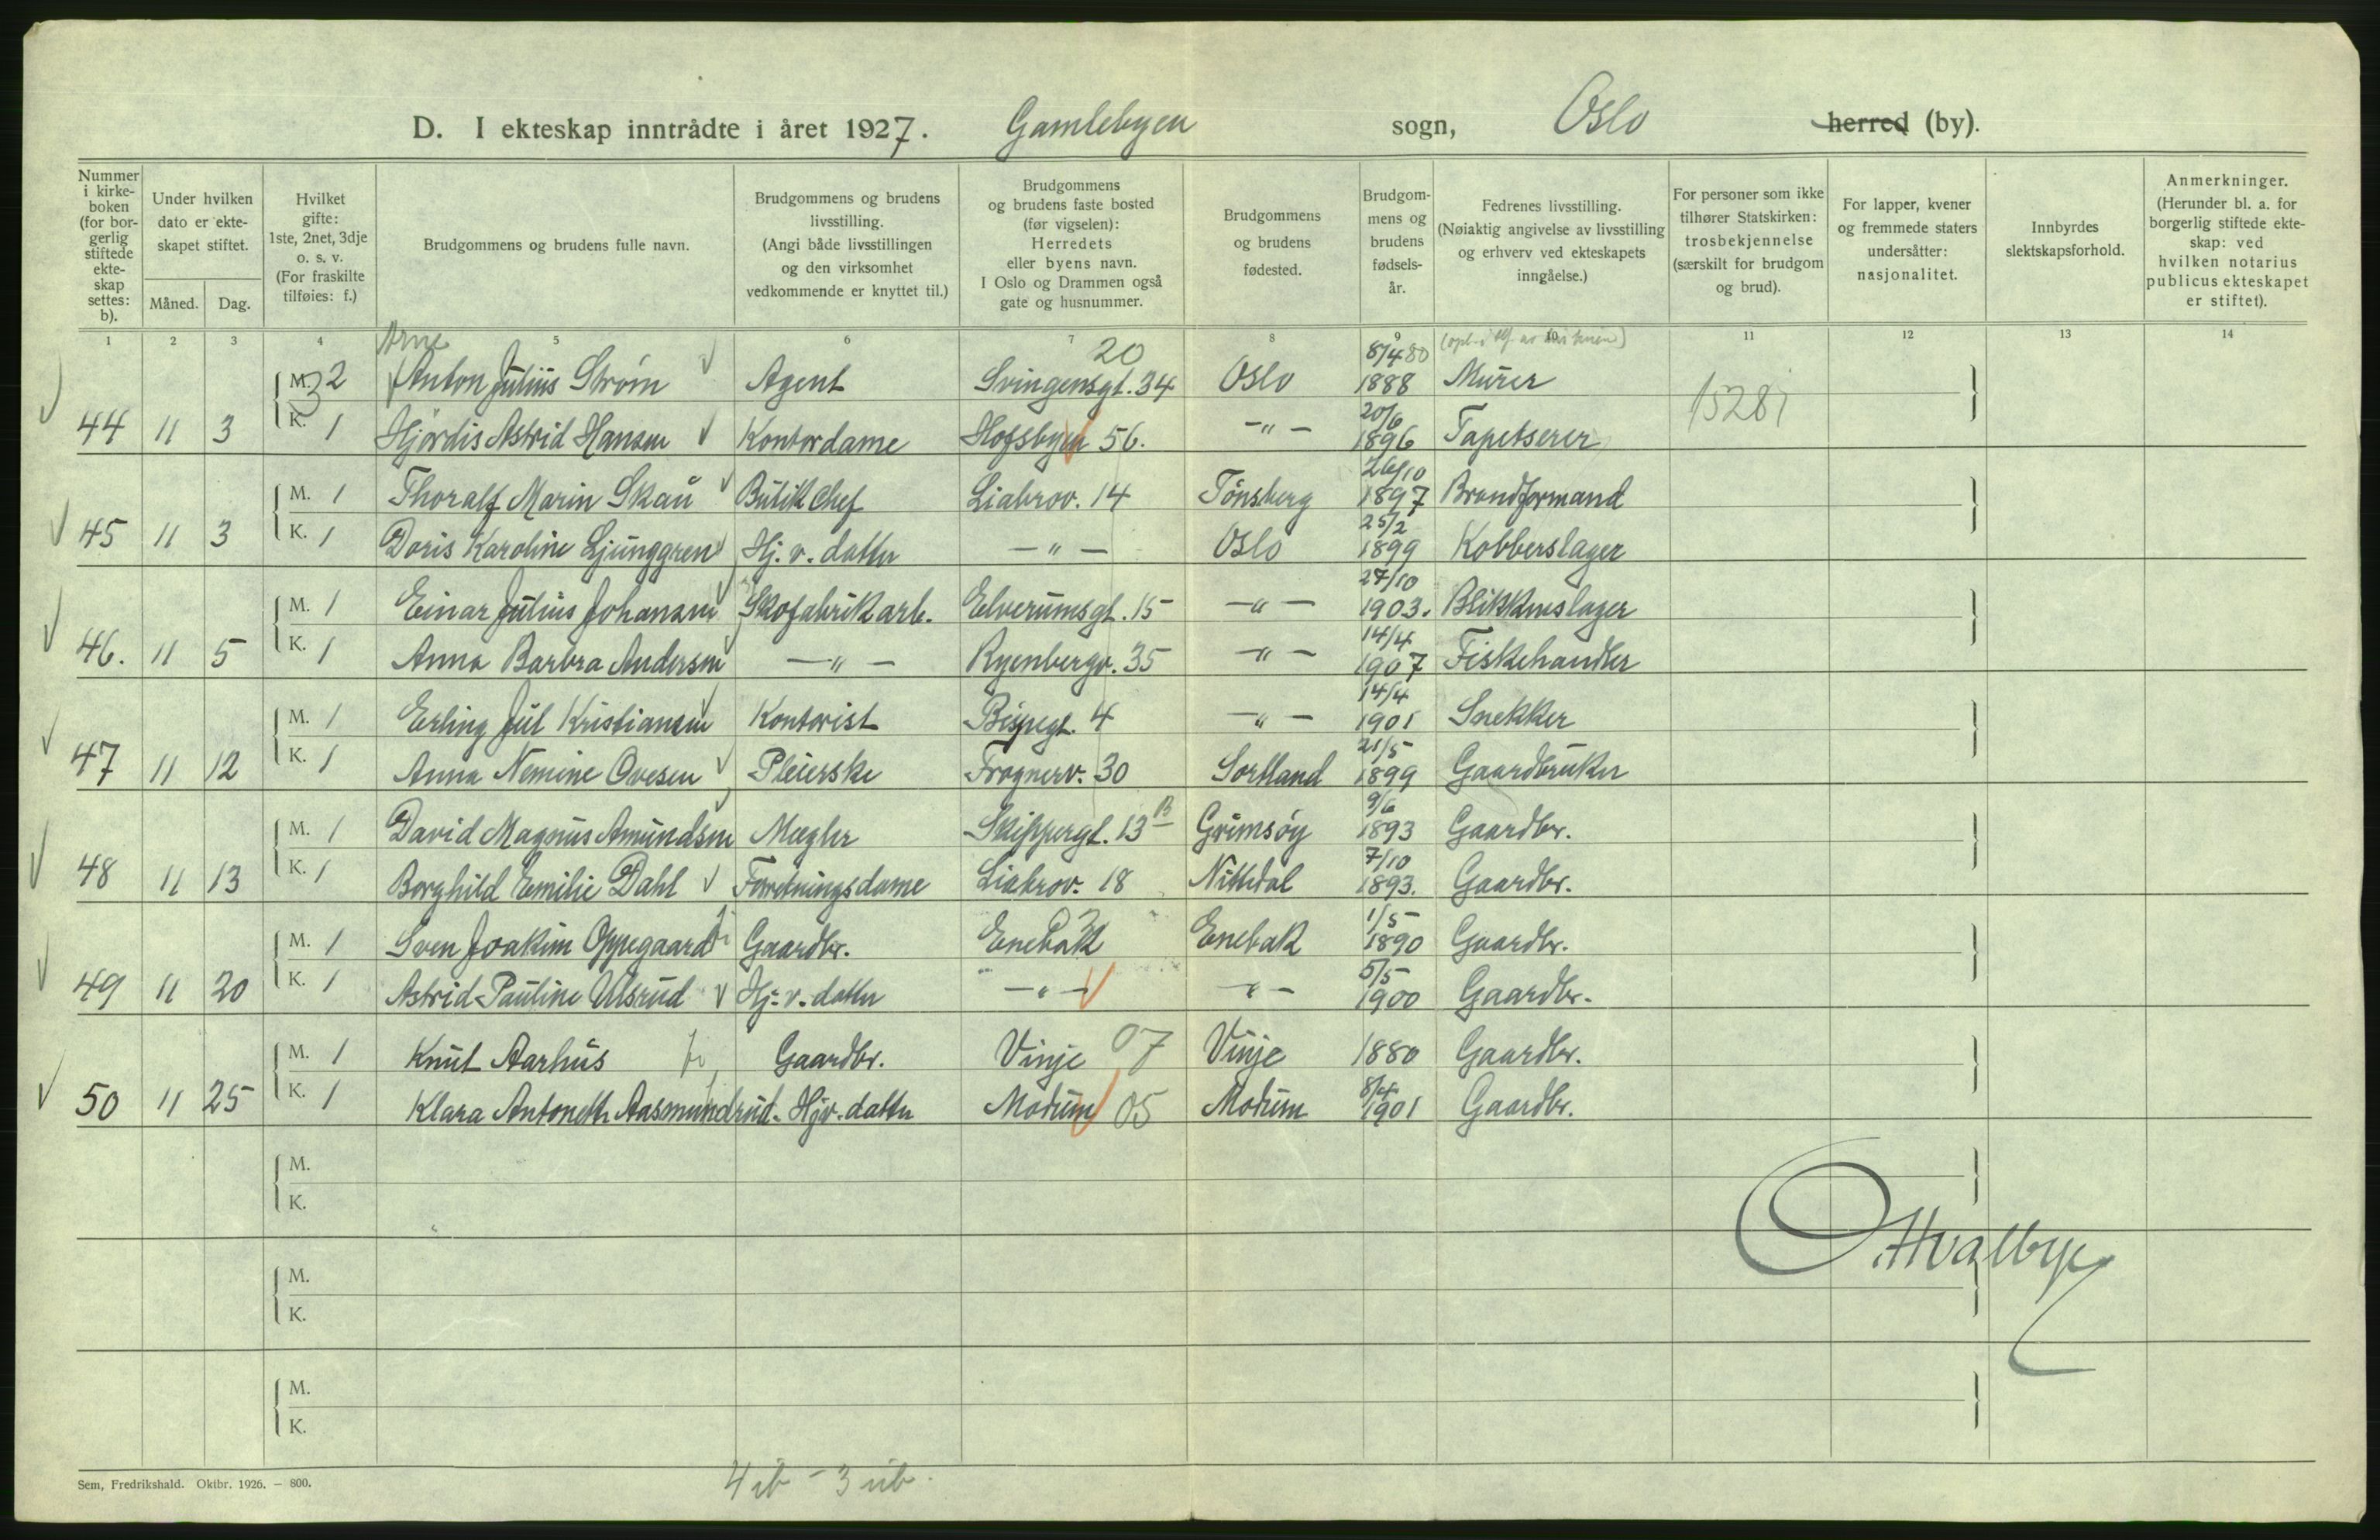 D. I ekteskap inntrådte i året 1927. Gamlebyen sogn, Oslo herred (by).
Nummer i kirkeboken (for borgerlig stiftede ekteskap settes: b).
Under hvilken dato er ekteskapet stiftet.
Måned. Dag.
Hvilket gifte: 1ste, 2net, 3dje o. s. v. (For fraskilte tilføies: f.)
Brudgommens og brudens fulle navn.
Brudgommens og brudens livsstilling. (Angi både livsstillingen og den virksomhet vedkommende er knyttet til.)
Brudgommens og brudens faste bosted (før vigselen): Herredets eller byens navn. I Oslo og Drammen også gate og husnummer.
Brudgommens og brudens fødested.
Brudgommens og brudens fødselsår.
Fedrenes livsstilling. (Nøiaktig angivelse av livsstilling og erhverv ved ekteskapets inngåelse.)
For personer som ikke tilhører Statskirken: trosbekjennelse (særskilt for brudgom og brud).
For lapper, kvener og fremmede staters undersåtter: nasjonalitet.
Innbyrdes slektskapsforhold.
Anmerkninger. (Herunder bl. a. for borgerlig stiftede ekteskap: ved hvilken notarius publicus ekteskapet er stiftet).
1 2 3 4 5 6 7 8 9 10 11 12 13 14
Arne 20 8/4 80
M. 2 3 Anton Julius Strøm Agent Svingensgt. 34 Oslo 1888 Murer 15281
44 11 3 K. 1 Hjørdis Astrid Hansen Kontordame Hofsbyen 56. -"- 20/6 1896 Tapetserer
M. 1 Thoralf Marin Skau Butikchef Liabrov. 14 Tønsberg 26/10 1897 Brandformand
45 11 3 K. 1 Doris Karoline Ljunggren Hj. v. datter -"- Oslo 25/2 1899 Kobberslager
M. 1 Einar Julius Johansen Skofabrikarb. Elverumsgt. 15 -"- 27/10 1903. Blikkenslager
46. 11 5 K. 1 Anna Barbra Andersen -"- Ryenbergv. 35 -"- 14/4 1907 Fiskehandler
M. 1 Erling Jul Kristiansen Kontorist Bispegt. 4 -"- 14/4 1901 Snekker
47 11 12 K. 1 Anna Nemine Ovesen Pleierske Frognerv. 30 Sortland 21/5 1899 Gaardbruker
M. 1 David Magnus Amundsen Mægler Skippergt. 13 B Grimsøy 9/6 1893 Gaardbr.
48 11 13 K. 1 Borghild Emilie Dahl Forretningsdame Liabrov. 18 Nittedal 7/10 1893. Gaardbr.
M. 1 Sven Joakim Oppegaard Gaardbr. Enebak Enebak 1/5 1890 Gaardbr.
49 11 20 K. 1 Astrid Pauline Ulsrud Hj. v. datter -"- -"- 5/5 1900 Gaardbr.
M. 1 Knut Aarhus Gaardbr. Vinje 07 Vinje 1880 Gaardbr.
50 11 25 K. 1 Klara Antonette Aasmundrud. Hjv. datter Modum 05 Modum 8/4 1901 Gaardbr.
M.
K.
O. Hvalbye
M.
K.
M.
K.
Sem, Fredrikshald. Oktbr. 1926. — 800.
4 ib - 3 ub.